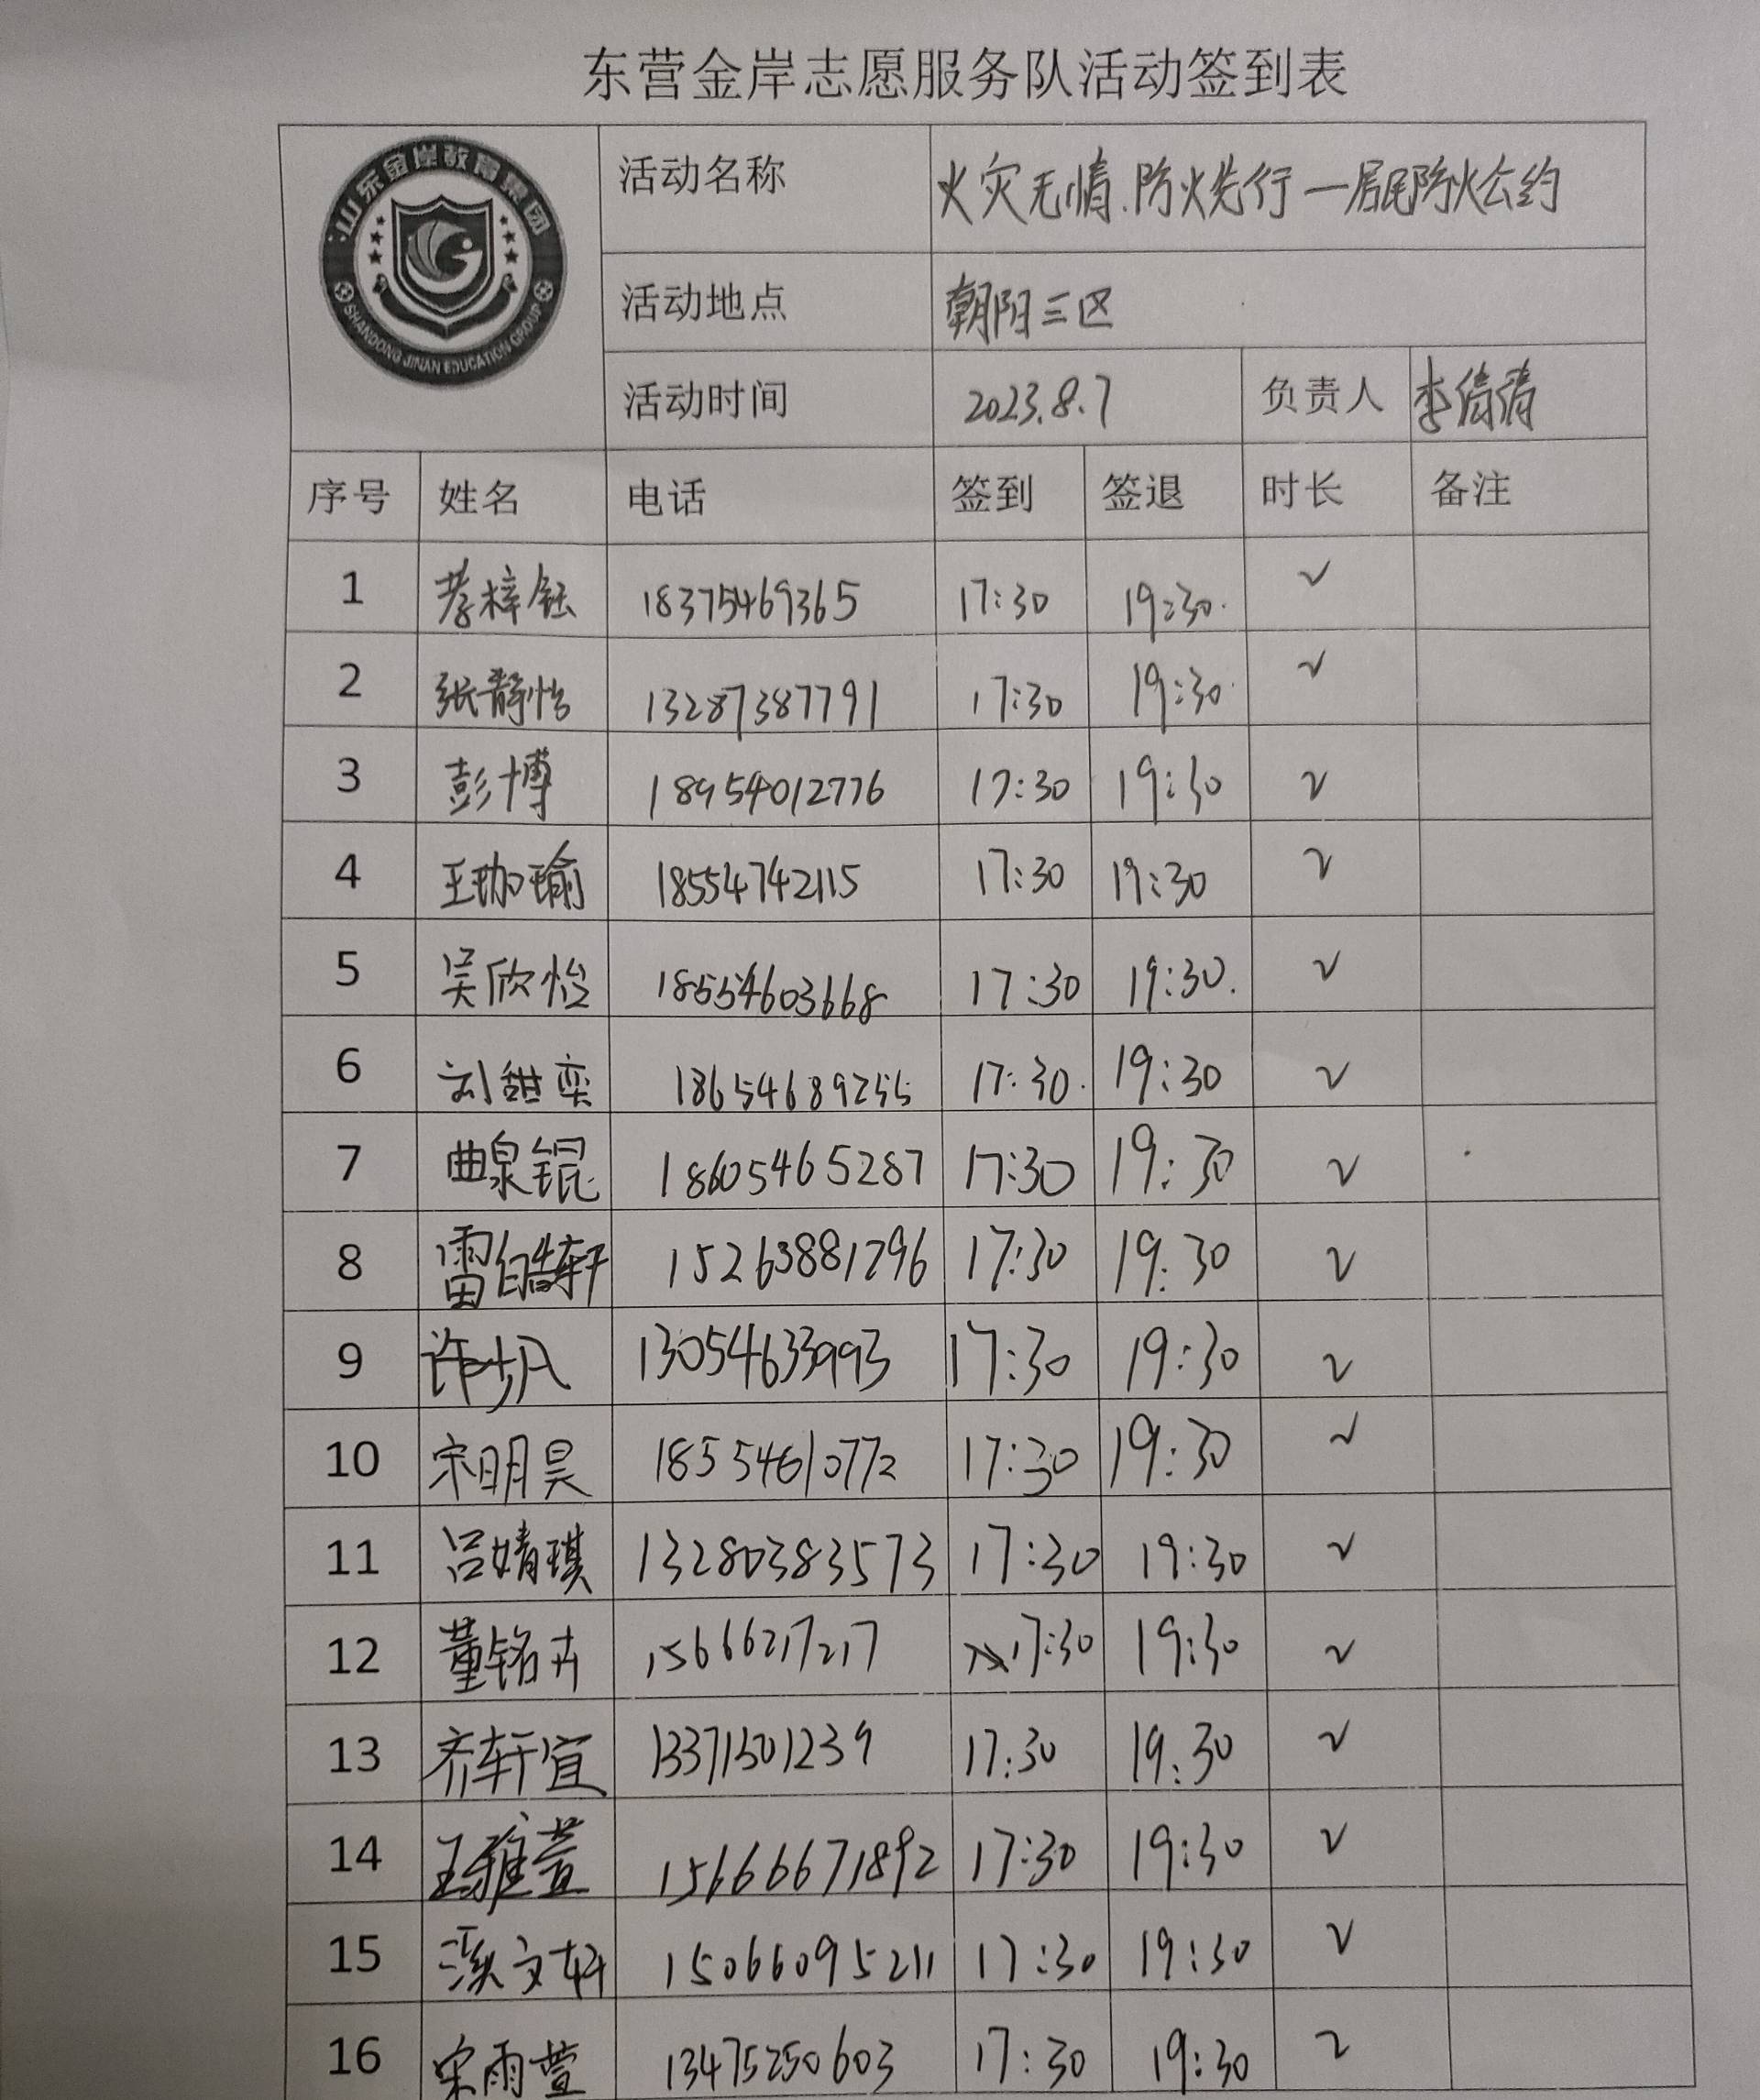 东营金岸志愿服务队活动签到表
山东金岸教育集团
SHANDONG JINAN EDUCATION GROUP
活动名称 火灾无情.防火先行一居民防火公约
活动地点 朝阳三区
活动时间 2023.8.7 负责人 李倩倩
序号 姓名 电话 签到 签退 时长 备注
1 梓钰 18375469365 17:30 19:30. ✓
2 张静怡 13287387791 17:30 19:30 ✓
3 彭博 18954012776 17:30 19:30 ✓
4 王珈瑜 18554742115 17:30 19:30 ✓
5 吴欣怡 18554603668 17:30 19:30. ✓
6 刘甜奕 18654689255 17:30. 19:30 ✓
7 曲泉锟 18605465287 17:30 19:30 ✓
8 雷皓轩 15263881796 17:30 19:30 ✓
9 许步凡 13054633993 17:30 19:30 ✓
10 宋明昊 18554610772 17:30 19:30 ✓
11 吕婧琪 13280383573 17:30 19:30 ✓
12 董铭卉 15666217217 17:30 19:30 ✓
13 齐轩宜 13371501239 17:30 19:30 ✓
14 王雅萱 15666671892 17:30 19:30 ✓
15 文轩 15066095211 17:30 19:30 ✓
16 宋雨萱 13475250603 17:30 19:30 ✓